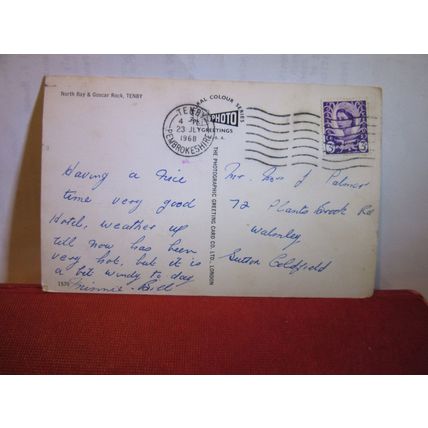 North Bay & Goscar Rock, TENBY
RAL COLOUR SERIES
PHOTO
GREETINGS
THE PHOTOGRAPHIC GREETING CARD CO. LTD., LONDON
TENBY
4
23 JLY
1968
PEMBROKESHIRE
Having a nice
time very good
Hotel, weather up
till now has been
very hot, but it is
a bit windy to day
Minnie Bill
1570
Mr. Mrs J Palmer
72 Plants Brook Rd
Walmley
Sutton Coldfield